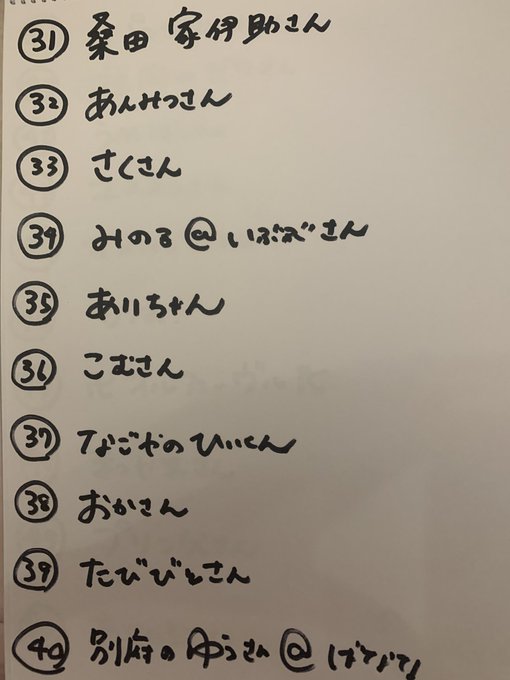 ㉛ 桑田 家伊助さん
㉜ あんみつさん
㉝ さくさん
㉞ みのる@いぶぶさん
㉟ あいちゃん
㊱ こむさん
㊲ なごやのひいくん
㊳ おかさん
㊴ たびびとさん
㊵ 別府のゆうさん@